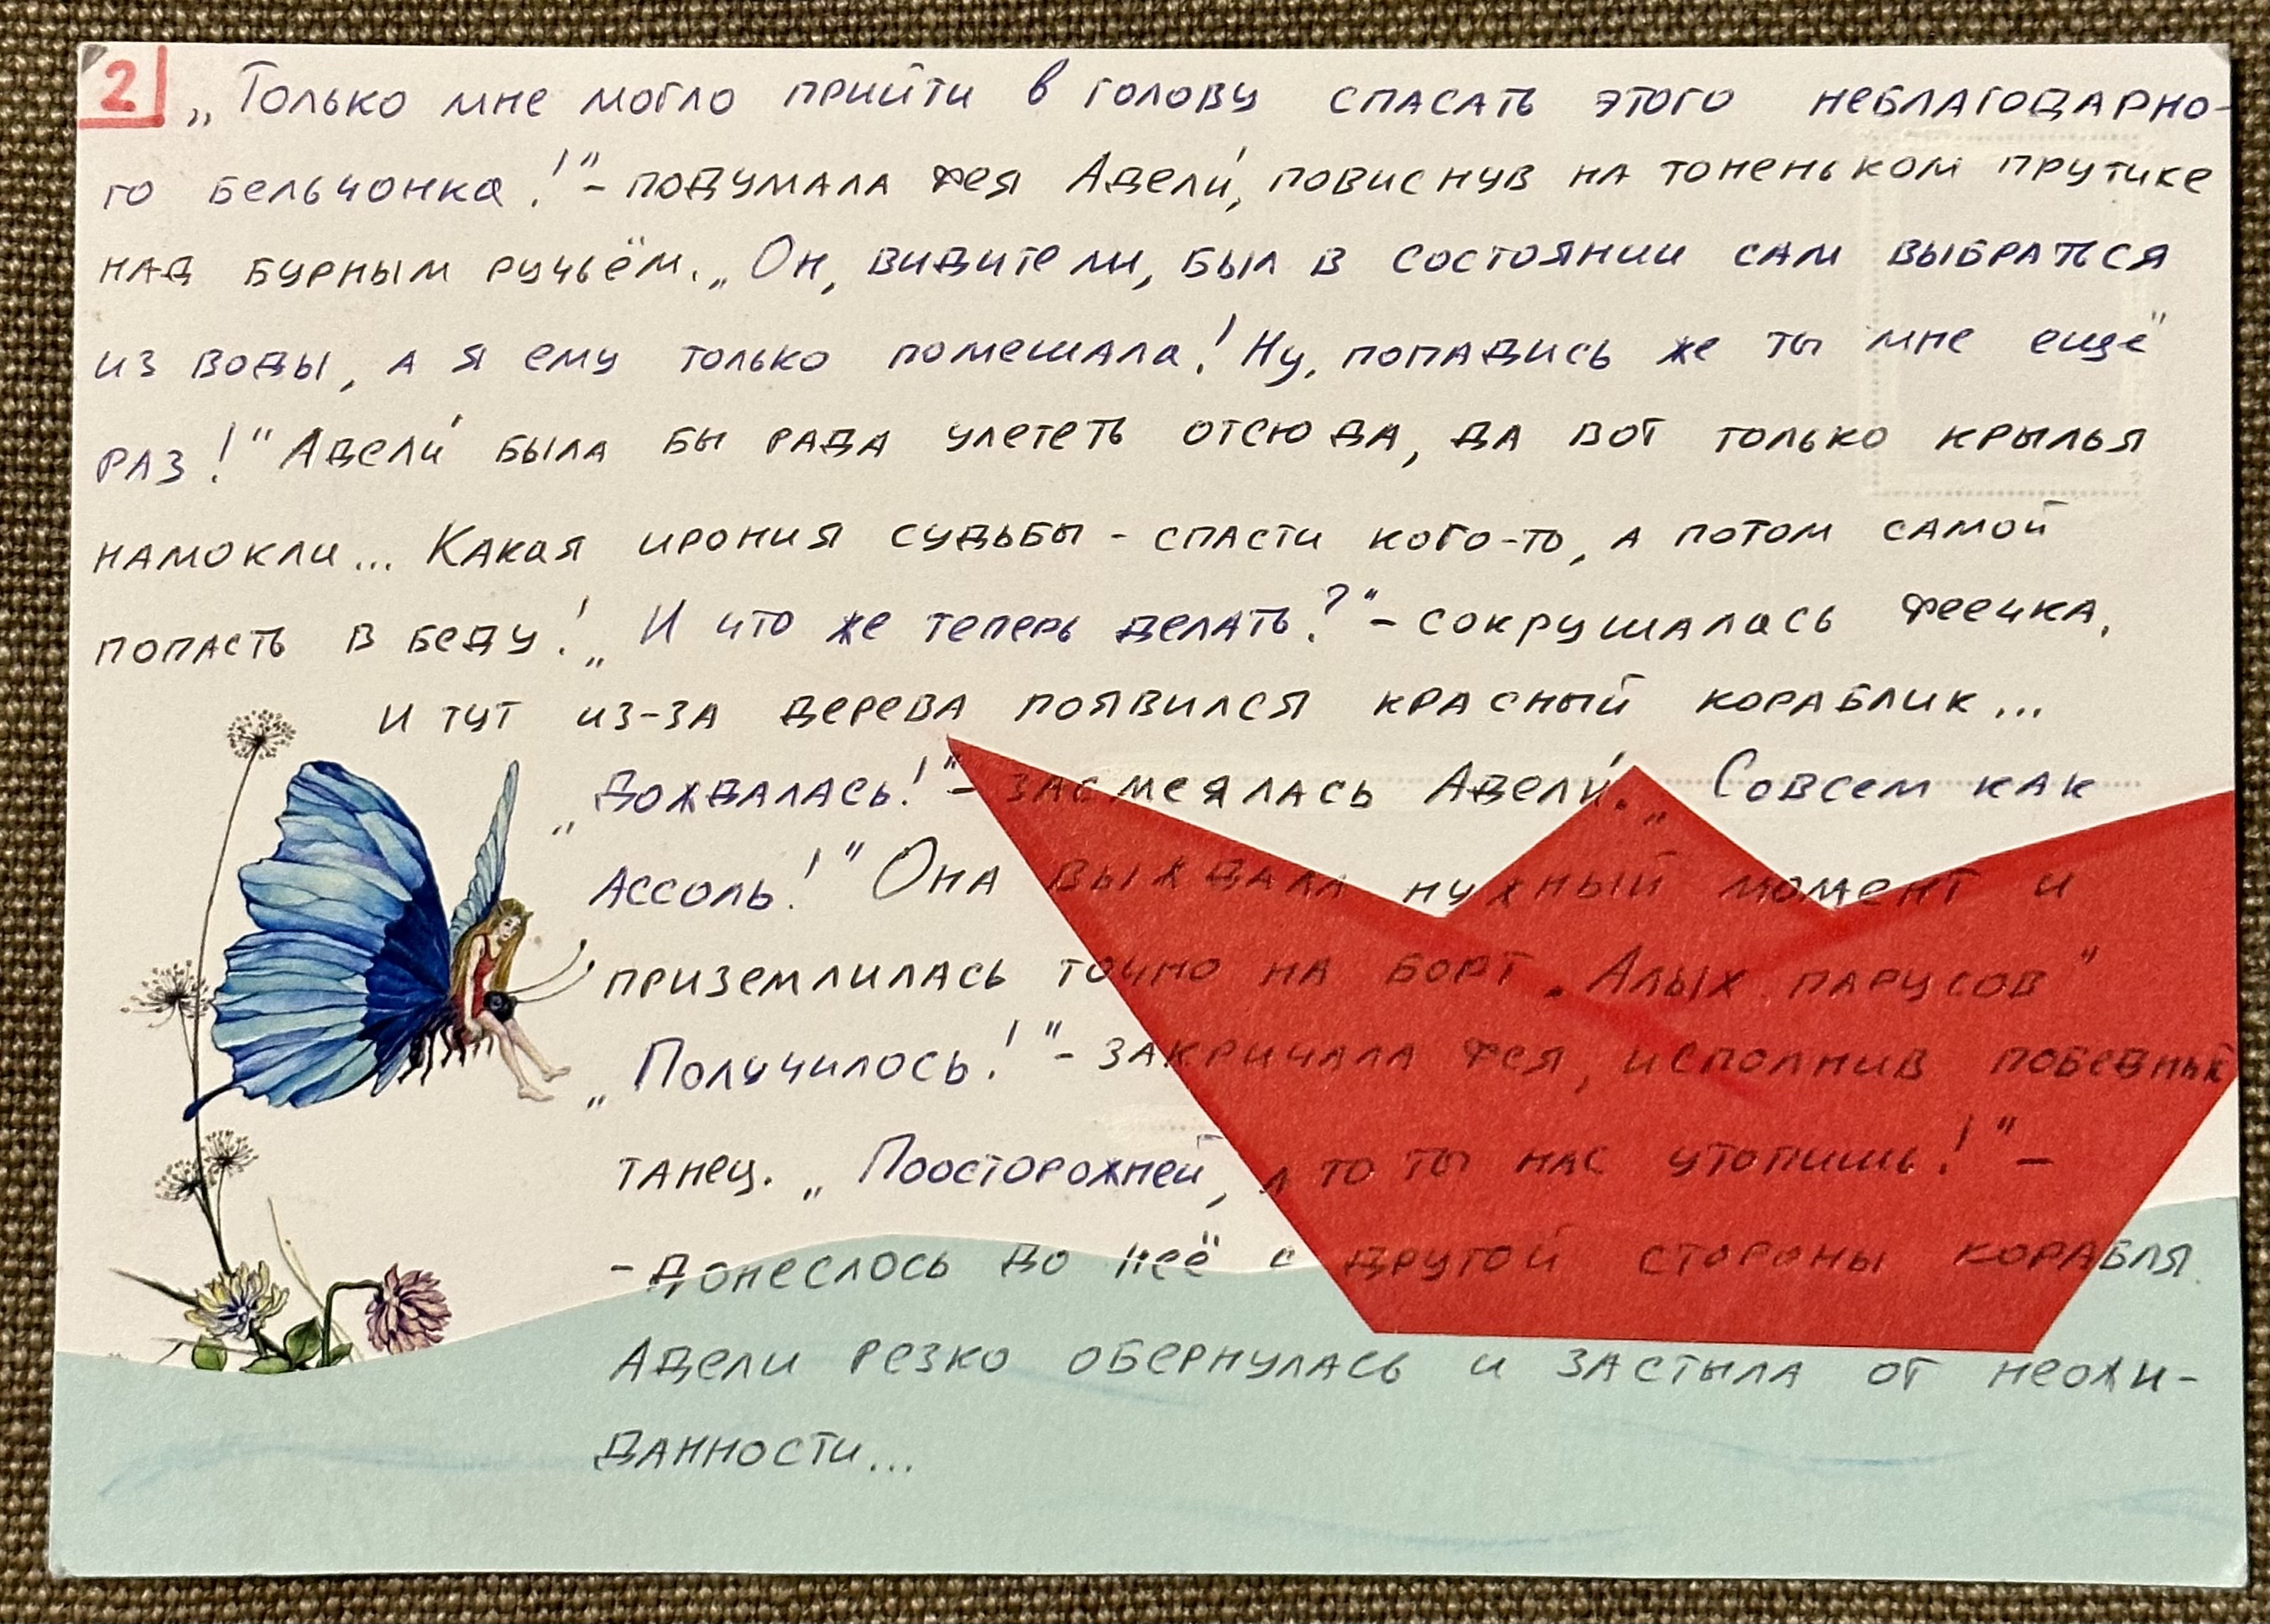 2 „Только мне могло прийти в голову спасать этого неблагодарно-
го бельчонка!" - подумала фея Адели́, повиснув на тоненьком прутике
над бурным ручьём. „Он, видите ли, был в состоянии сам выбраться
из воды, а я ему только помешала! Ну, попадись же ты мне ещё
раз!" Адели́ была бы рада улететь отсюда, да вот только крылья
намокли... Какая ирония судьбы - спасти кого-то, а потом самой
попасть в беду! „И что же теперь делать?" - сокрушалась феечка.
И тут из-за дерева появился красный кораблик...
„Дождалась!" - засмеялась Адели́. „Совсем как
Ассоль!" Она выждала нужный момент и
приземлилась точно на борт „Алых парусов"
„Получилось!" - закричала фея, исполнив победный
танец. „Поосторожней, а то ты нас утопишь!" -
- донеслось до неё с другой стороны корабля.
Адели резко обернулась и застыла от неожи-
данности...